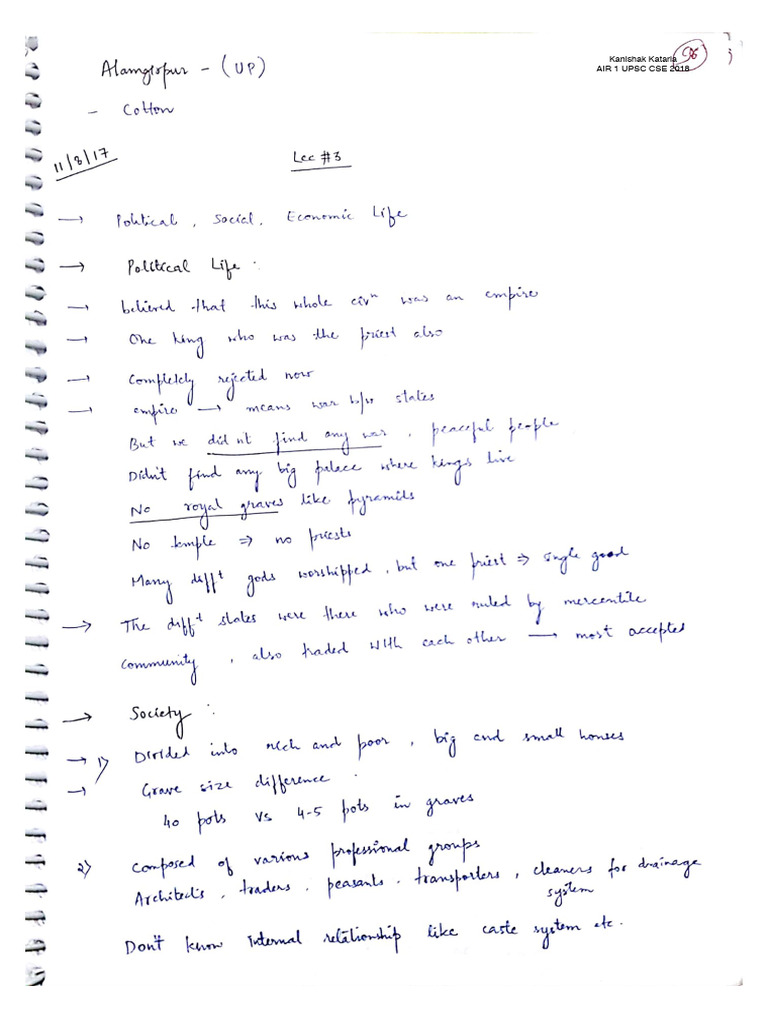 Kanishak Kataria
AIR 1 UPSC CSE 2018
Alamgirpur - (UP)
- Cotton
11/8/17
Lec #3
→ Political, Social, Economic Life
→ Political Life :
→ believed that this whole civⁿ was an empire
→ One king who was the priest also
→ Completely rejected now
→ empire → means war b/w states
But we didnt find any war, peaceful people
Didn't find any big palace where kings live
No royal graves like pyramids
No temple ⇒ no priests
Many diffᵗ gods worshipped, but one priest ⇒ single good
→ The diffᵗ states were there who were ruled by mercentile
community, also traded with each other → most accepted
→ Society :
→ 1) Divided into rich and poor, big and small houses
→ Grave size difference :
40 pots vs 4-5 pots in graves
2) Composed of various professional groups
Architects, traders, peasants, transporters, cleaners for drainage
system
Don't know internal relationship like caste system etc.